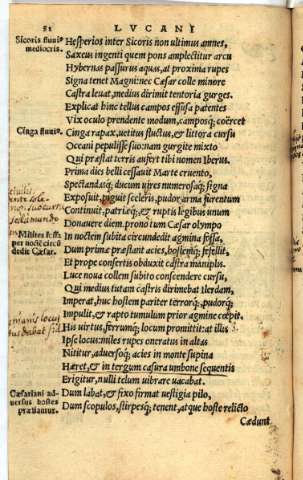 52 LVCANI
Sicoris fluui⁹
mediocris.
Hesperios inter Sicoris non ultimus amnes,
Saxeus ingenti quem pons amplectitur arcu
Hybernas passurus aquas, at proxima rupes
Signa tenet Magni: nec Cæsar colle minore
Castra leuat, medius dirimit tentoria gurges.
Explicat hinc tellus campos effusa patentes
Vix oculo prendente modum, camposq; coërcet
Cinga fluui⁹.
Cinga rapax, uetitus fluctus, & littora cursu
Oceani pepulisse suo: nam gurgite mixto
Qui præstat terris aufert tibi nomen Iberus.
Prima dies belli cessauit Marte cruento,
Spectandasq; ducum uires numerosaq; signa
Exposuit, piguit sceleris, pudor arma furentum
Continuit, patriæq; & ruptis legibus unum
Donauere diem. prono tum Cæsar olympo
Milites fessi
per noctē circū
dedit Cæsar.
In noctem subita circundedit agmina fossa,
Dum primæ præstant acies, hostemq; fefellit,
Et prope consertis obduxit castra maniplis.
Luce noua collem subito conscendere cursu,
Qui medius tutam castris dirimebat Ilerdam,
Imperat, huc hostem pariter terrorq; pudorq;
Impulit, & rapto tumulum prior agmine cœpit.
His uirtus, ferrumq; locum promittit: at illis
Ipse locus: miles rupes oneratus in altas
Nititur, aduersoq; acies in monte supina
Hæret, & in tergum casura umbone sequentis
Erigitur, nulli telum uibrare uacabat.
Cæsariani ad-
uersus hostes
præliantur.
Dum labat, & fixo firmat uestigia pilo,
Dum scopulos, stirpesq; tenent, atque hoste relicto
Cædunt